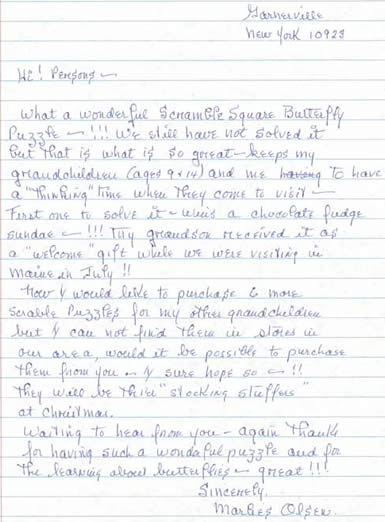 Garnerville
New York 10923
Hi! Persons ~
What a wonderful Scramble Square Butterfly
Puzzle ~ !!! We still have not solved it
but that is what is so great ~ keeps my
grandchildren (ages 9 & 14) and me having to have
a "thinking" time when they come to visit ~
First one to solve it ~ wins a chocolate fudge
sundae ~ !!! My grandson received it as
a "welcome" gift while we were visiting in
Maine in July !!
Now I would like to purchase 6 more
Scrable Puzzles for my other grandchildren
but I can not find them in stores in
our area, would it be possible to purchase
them from you ~ I sure hope so ~ !!
They will be their "stocking stuffers"
at Christmas.
Waiting to hear from you ~ again thanks
for having such a wonderful puzzle and for
the learning about butterflies ~ great !!!
Sincerely,
Olsen